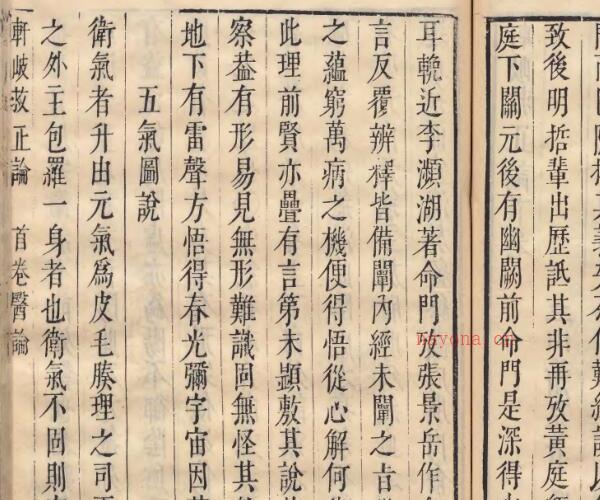 致後明哲輩出歷詆其非再攷黃庭
庭下關元後有幽闕前命門是深得
耳輓近李瀕湖著命門攷張景岳作
言反覆辨釋皆備闡內經未闡之旨
之蘊窮萬病之機便得悟從心解何
此理前賢亦疊有言第未顯敷其說
察葢有形易見無形難識固無怪其
地下有雷聲方悟得春光彌宇宙因
五氣圖說
衛氣者升出元氣爲皮毛腠理之司
之外主包羅一身者也衛氣不固則
軒岐救正論 首卷醫論
nayona.cn